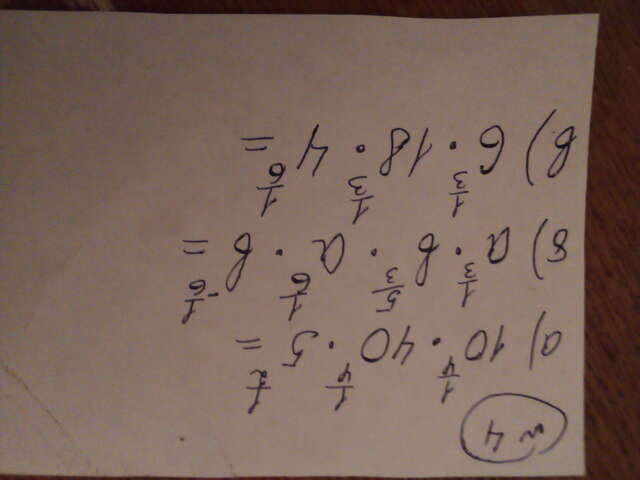 № 4
а) 10^{1/4} · 40^{1/4} · 5^{1/2} =
б) a^{1/3} · b^{5/3} · a^{1/6} · b^{-1/6} =
в) 6^{1/3} · 18^{1/3} · 4^{1/6} =